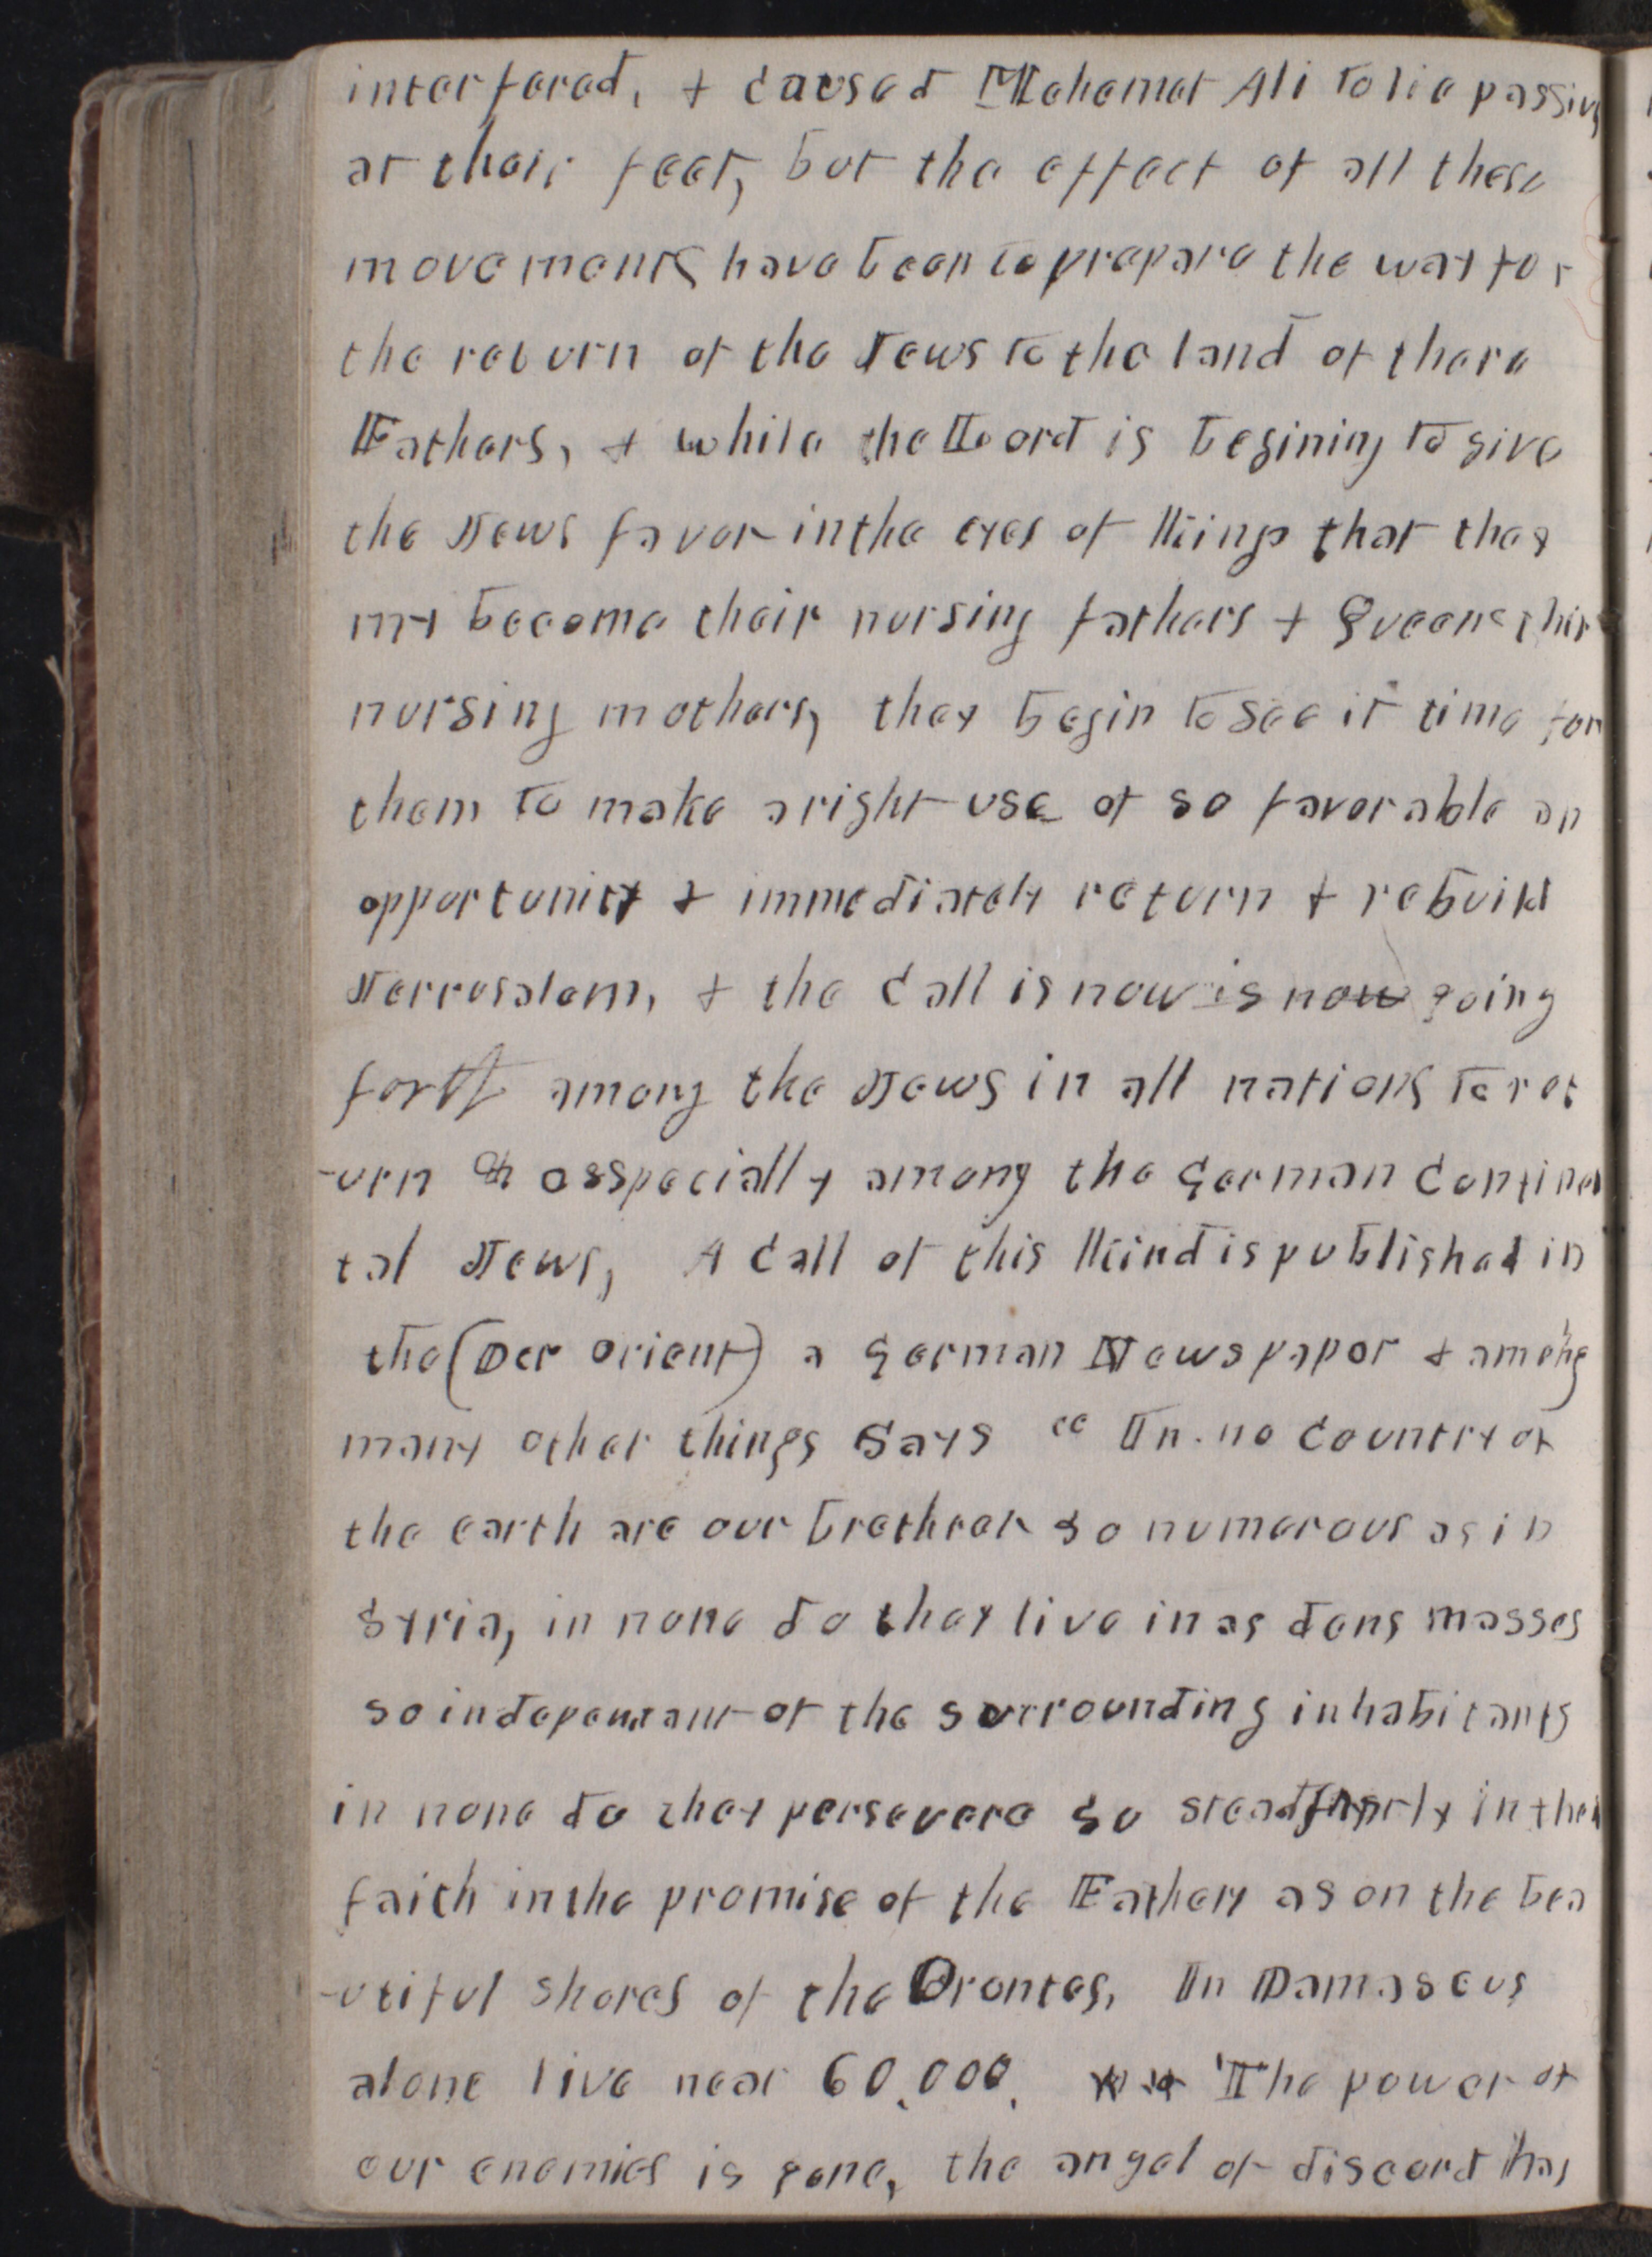 interfered, + caused Mehemet Ali to lie passive
at their feet, but the effect of all these
movements have been to prepare the way for
the return of the Jews to the land of there
Fathers, + while the Lord is begining to give
the Jews favor in the eyes of Kings that they
my become their nursing fathers + Queens thir
nursing mothers, they begin to see it time for
them to make a right use of so favorable an
opportunity + immediately return + rebuild
Jerrusalem, + the call is now is now going
forth among the Jews in all nations to ret
-urn osspecially among the German Continen
tal Jews, A call of this Kind is published in
the (Der Orient) a German Newspaper + among
many other things Says " In no Country of
the earth are our brethren so numerous as in
Syria, in none do they live in as dens masses
so independant of the surrounding inhabitants
in none do they persevere so steadfastly in their
faith in the promise of the Fathers as on the bea
-utiful shores of the Orontes, In Damascus
alone live near 60,000, The power of
our enemies is gone, the angel of discord has